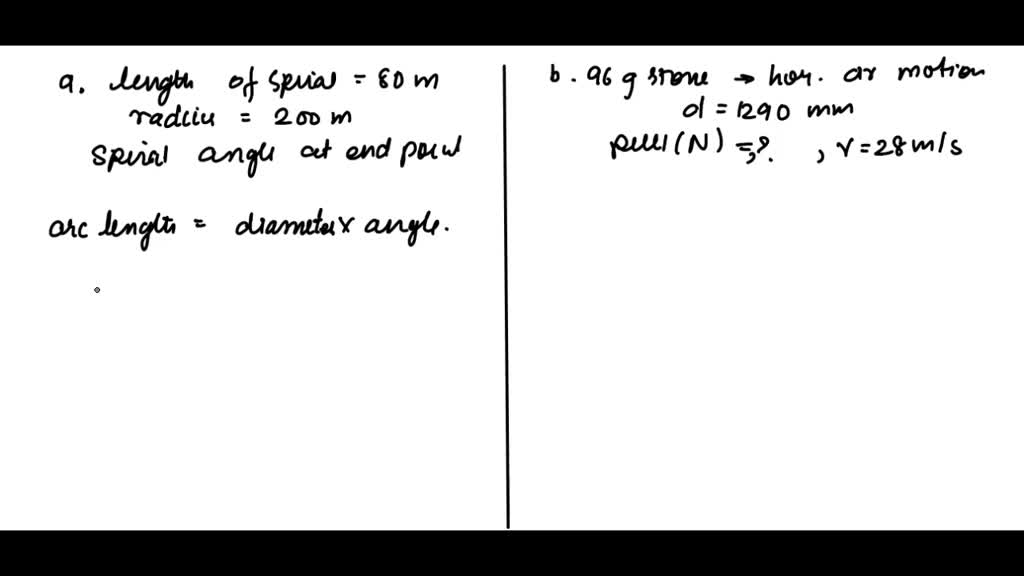 a. length of spiral = 80 m
radciu = 200 m
spiral angle at end point
arc length = diameter x angle.
b. 96 g stone → hor. ar motion
d = 1290 mm
pull (N) = ?. , v = 28 m/s